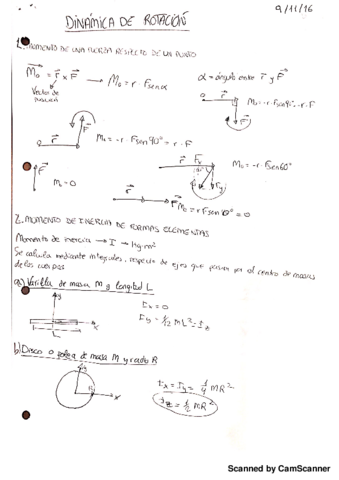 9/11/16
DINÁMICA DE ROTACIÓN
1. MOMENTO DE UNA FUERZA RESPECTO DE UN PUNTO
M₀ = r x F → M₀ = r · F senα
α = ángulo entre r y F
Vector de
M₀ = -r · F sen90° = -r · F
r
F
M₀ = r · F sen90° = r · F
r
F
M₀ = -r · F sen60°
F
M₀ = 0
r
F
M₀ = r F sen0° = 0
2. MOMENTO DE INERCIA DE FORMAS ELEMENTALES
Momento de inercia → I → kg·m²
Se calcula mediante integrales, respecto de ejes que pasan por el centro de masas
de los cuerpos
a) Varilla de masa M y longitud L
y
x
L
Ix = 0
Iy = 1/12 ML² = Iz
b) Disco o polea de masa M y radio R
y
R
x
Ix = Iy = 1/4 MR²
Iz = 1/2 MR²
Scanned by CamScanner